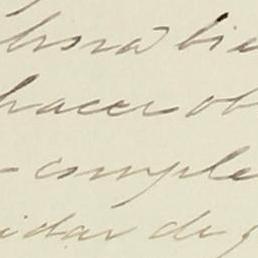 hora bie
hacer ob
- comple
idar de